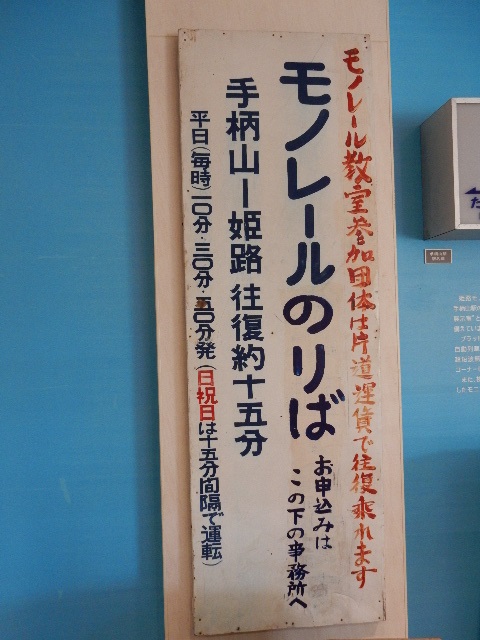 モノレール教室参加団体は片道運賃で往復乘れます
モノレールのりば
お申込みは
この下の事務所へ
手柄山ー姫路 往復約十五分
平日(毎時)一〇分・三〇分・五〇分発(日祝日は十五分間隔で運転)